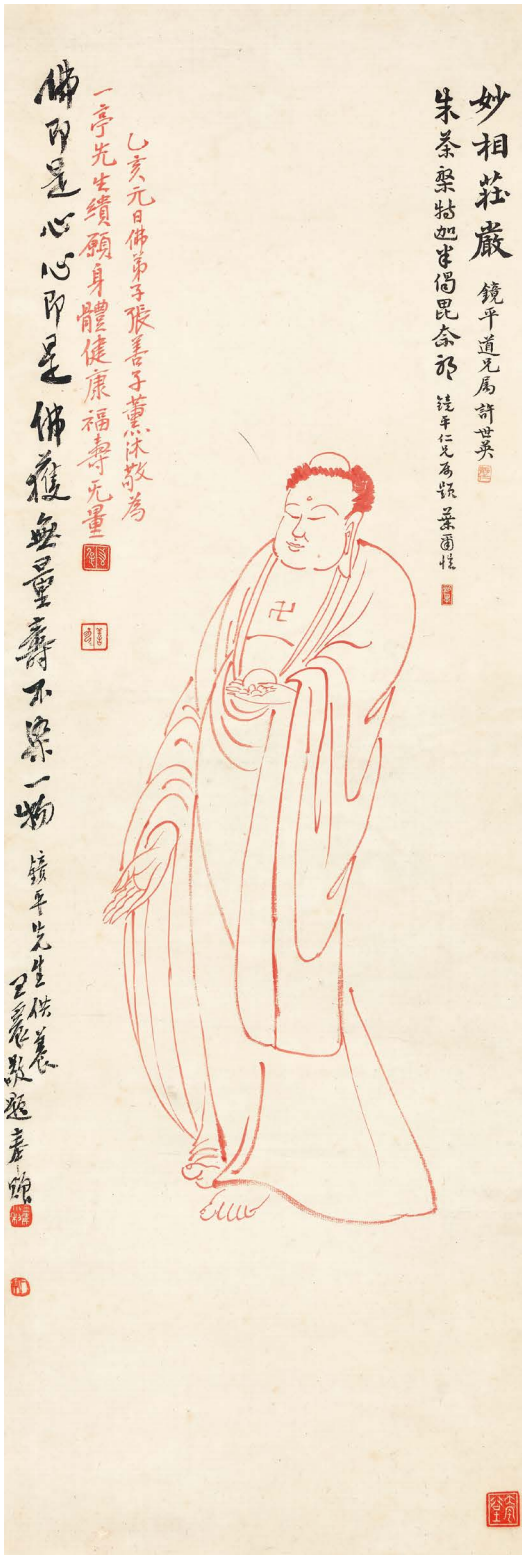 妙相莊嚴
鏡平道兄属 許世英
朱茶槃特迦半偈毘奈耶
鏡平仁兄属題 葉爾愷
乙亥元日佛弟子張善子薰沐敬為
一亭先生繢願身體健康福壽无量
佛即是心心即是佛獲無量壽不染一物
鏡平先生供養
王震敬題